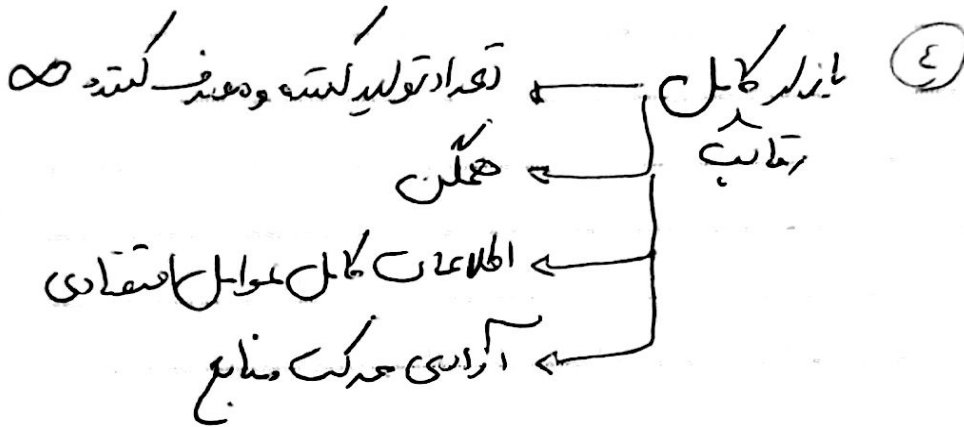 ٤ بازار کامل ← تعداد تولید کننده و مصرف کننده ∞
رقابت
← همگن
← اطلاعات کامل عوامل اقتصادی
← آزادی حرکت منابع